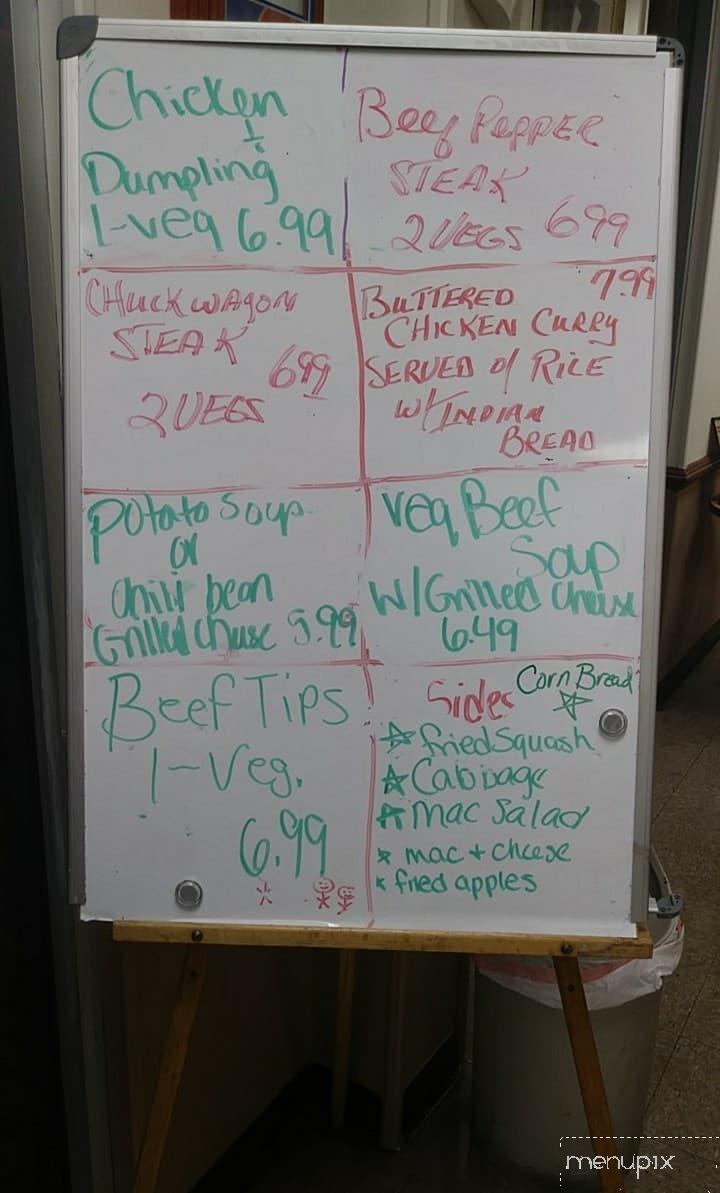 Chicken
&
Dumpling
1-veg 6.99
Beef PEPPER
STEAK
2 VEGS 699
CHUCKWAGON
STEAK
699
2 VEGS
7.99
BUTTERED
CHICKEN CURRY
SERVED o/ RICE
w/ INDIAN
BREAD
Potato Soup
or
Chili bean
Grilled Cheese 5.99
Veg Beef
Soup
W/Grilled Cheese
6.49
Beef Tips
1-Veg.
6.99
Sides
Corn Bread
fried Squash
Cabbage
mac Salad
mac + cheese
fried apples
menupix